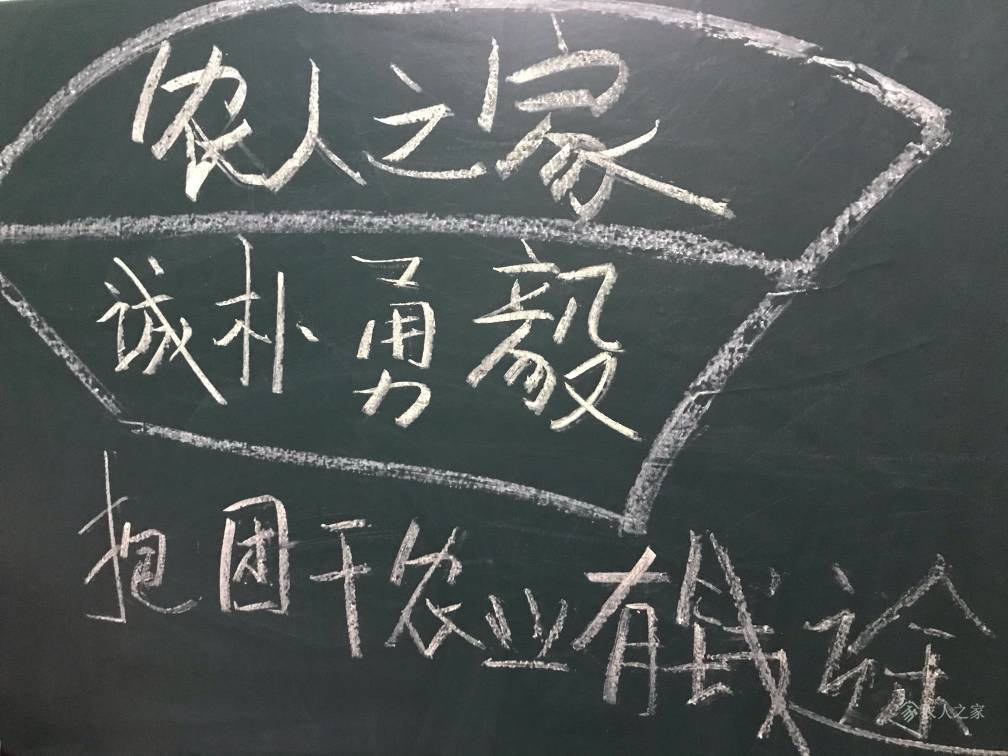 农人之家
诚朴勇毅
抱团干农业有钱途
农人之家